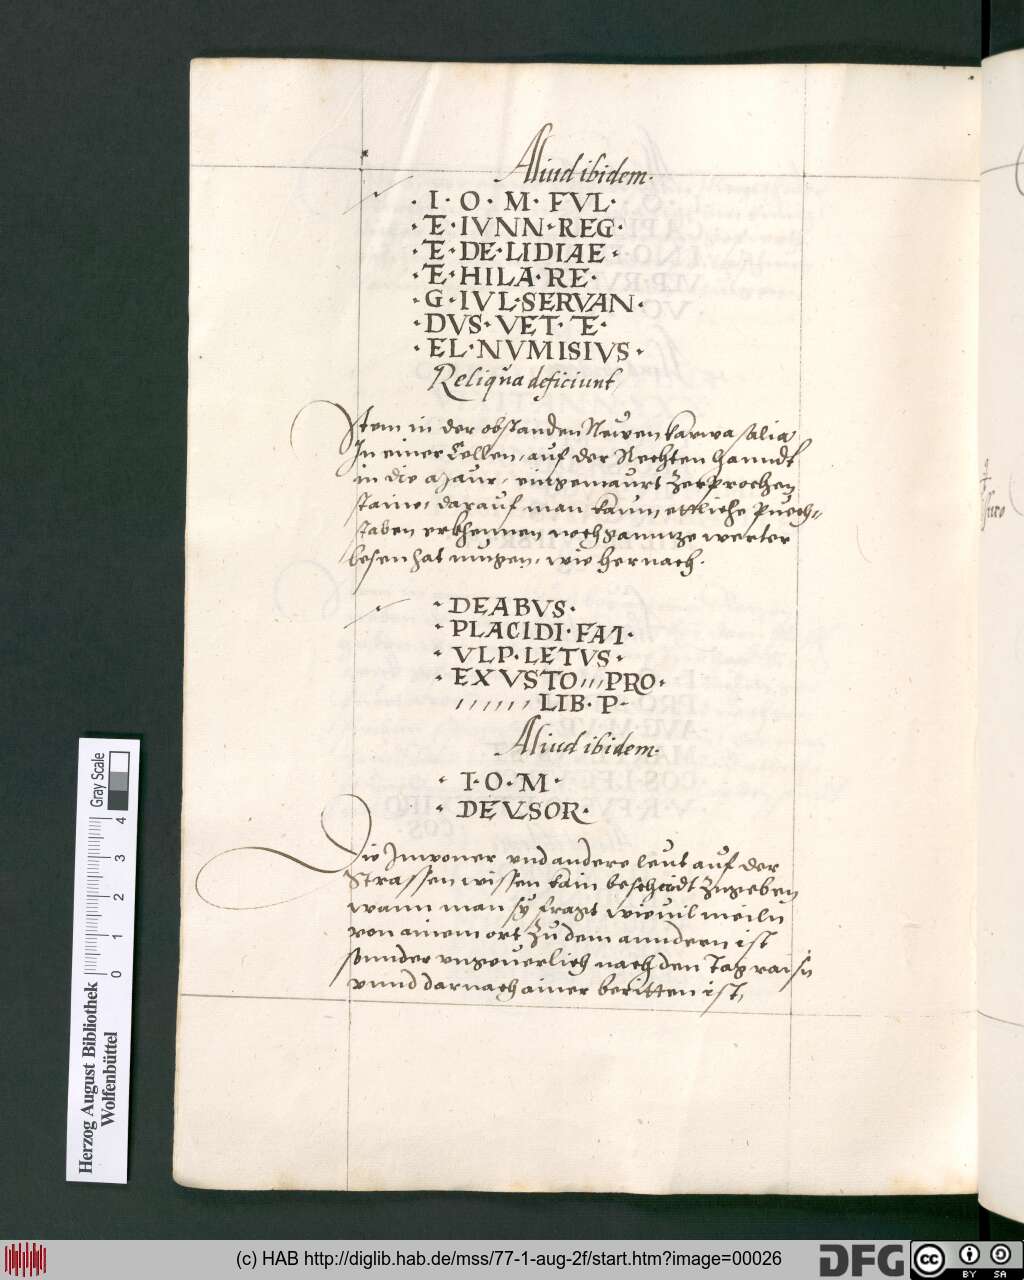 Aliud ibidem.
· I · O · M · FVL ·
· E · IVNN · REG ·
· E · DE · LIDIAE ·
· E · HILA · RE ·
· G · IVL · SERVAN ·
· DVS · VET · E ·
· EL · NVMISIVS ·
Reliqua deficiunt,
Item in der obstanden Neuen karwasalia
In einer Cellen, auf der Rechten hanndt
in die Maur, eingemaurt zerprochen
staine, darauf man kaum ettliche puech-
staben erkhennen noch ganntze werter
lesen hat mugen, wie hernach.
· DEABVS ·
· PLACIDI · FAI ·
· VLP · LETVS ·
· EXVSTO,,,PRO ·
,,,,,, LIB · P ·
Aliud ibidem.
· I · O · M ·
· DEVSOR ·
Die Inwoner vnd andere leut auf der
Strassen wissen kain beschaidt zugeben
wann man sy fragt wieuil meiln
von ainem ort zu dem anndern ist
sonnder vngeuerlich nach den Tagraisn
vnnd darnach ainer beritten ist,
Herzog August Bibliothek
Wolfenbüttel
Gray Scale
0 1 2 3 4
(c) HAB http://diglib.hab.de/mss/77-1-aug-2f/start.htm?image=00026
DFG
cc
BY SA